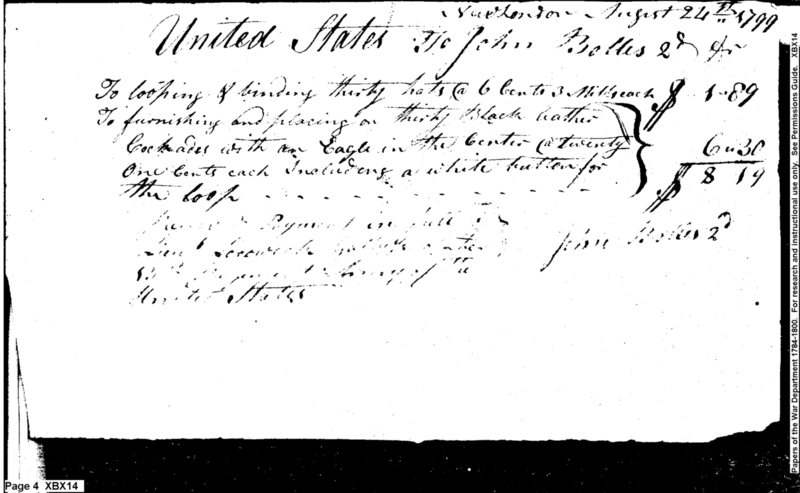 New London August 24th 1799
United States To John Bolles 2d Dr
To looping & binding thirty hats @ 6 Cents 3 Mills each $ 1"89
To furnishing and placing on thirty Black leather
Cockades with an Eagle in the Center @ twenty 6"30
One Cents each Including a white button for
the loop $ 8 19
Payment in full
John Bolles 2d
13th Regiment Army of the
United States
Page 4 XBX14
Papers of the War Department 1784-1800. For research and instructional use only. See Permissions Guide. XBX14